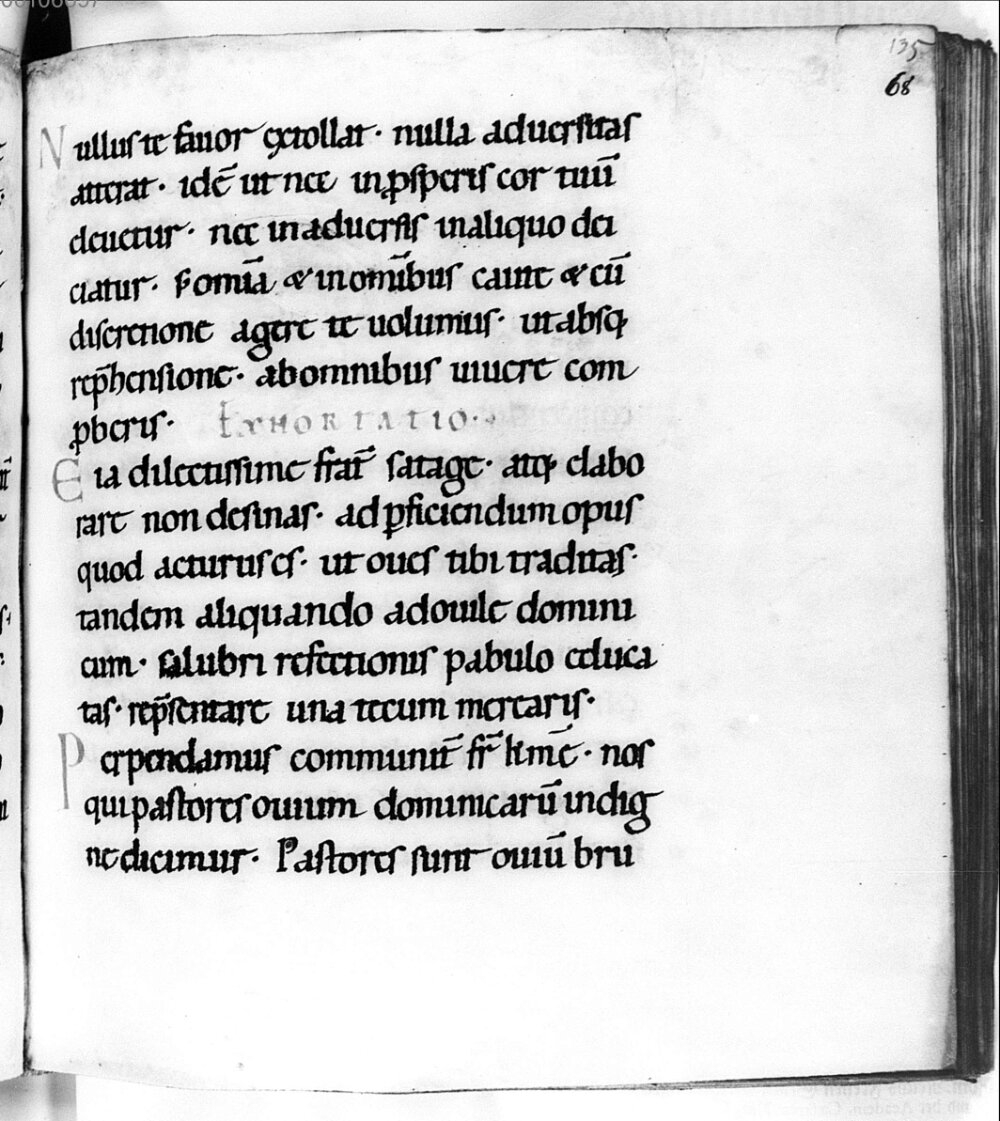 135
68
Nullus te fauor extollat· nulla aduersitas
atterat· idē ut nec in ꝓsperis cor tuū
eleuetur· nec in aduersis in aliquo dei
ciatur· s; om̄ia & in om̄ibus caute & cū
discretione agere te uolumus· ut absq;
rep̄hensione· ab omnibus uiuere com
ꝓberis· EXHORTATIO·
Eia dilectissime frat̄ satage· atq; elabo
rare non desinas· ad ꝑficiendum opus
quod acturus es· ut oues tibi traditas·
tandem aliquando ad ouile domini
cum· salubri refectionis pabulo educa
tas· rep̄sentare una tecum merearis·
Perpendamus communit̄ fr̄ kīme· nos
qui pastores ouium dominicarū indig
ne dicimur· Pastores sunt ouiū bru